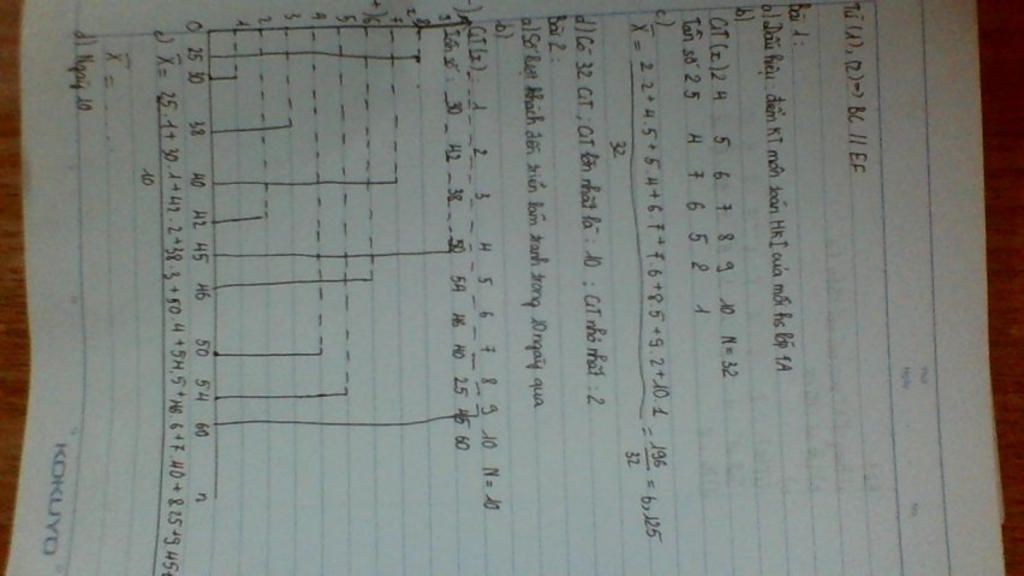 Từ (1), (2) => BC // EF
Bài 1:
a) Dấu hiệu: điểm KT môn toán HKI của mỗi hs lớp 7A
b)
GT (x) 2 4 5 6 7 8 9 10 N = 32
Tần số 2 5 4 7 6 5 2 1
c)
X = 2.2+4.5+5.4+6.7+7.6+8.5+9.2+10.1 = 196 = 6,125
32 32
d) Có 32 GT, GT lớn nhất là: 10; GT nhỏ nhất: 2
Bài 2:
a) Số lượt khách đến xem tranh trong 10 ngày qua
b)
GT (x) 1 2 3 4 5 6 7 8 9 10 N = 10
Tần số: 30 42 38 50 54 46 40 25 45 60
9
8
7
6
5
4
3
2
1
0 25 30 38 40 42 45 46 50 54 60 n
c) X = 25.1+30.1+42.2+38.3+50.4+54.5+46.6+7.40+8.25+9.45+
10
X = ....
d) Ngày 10
KOKUYO